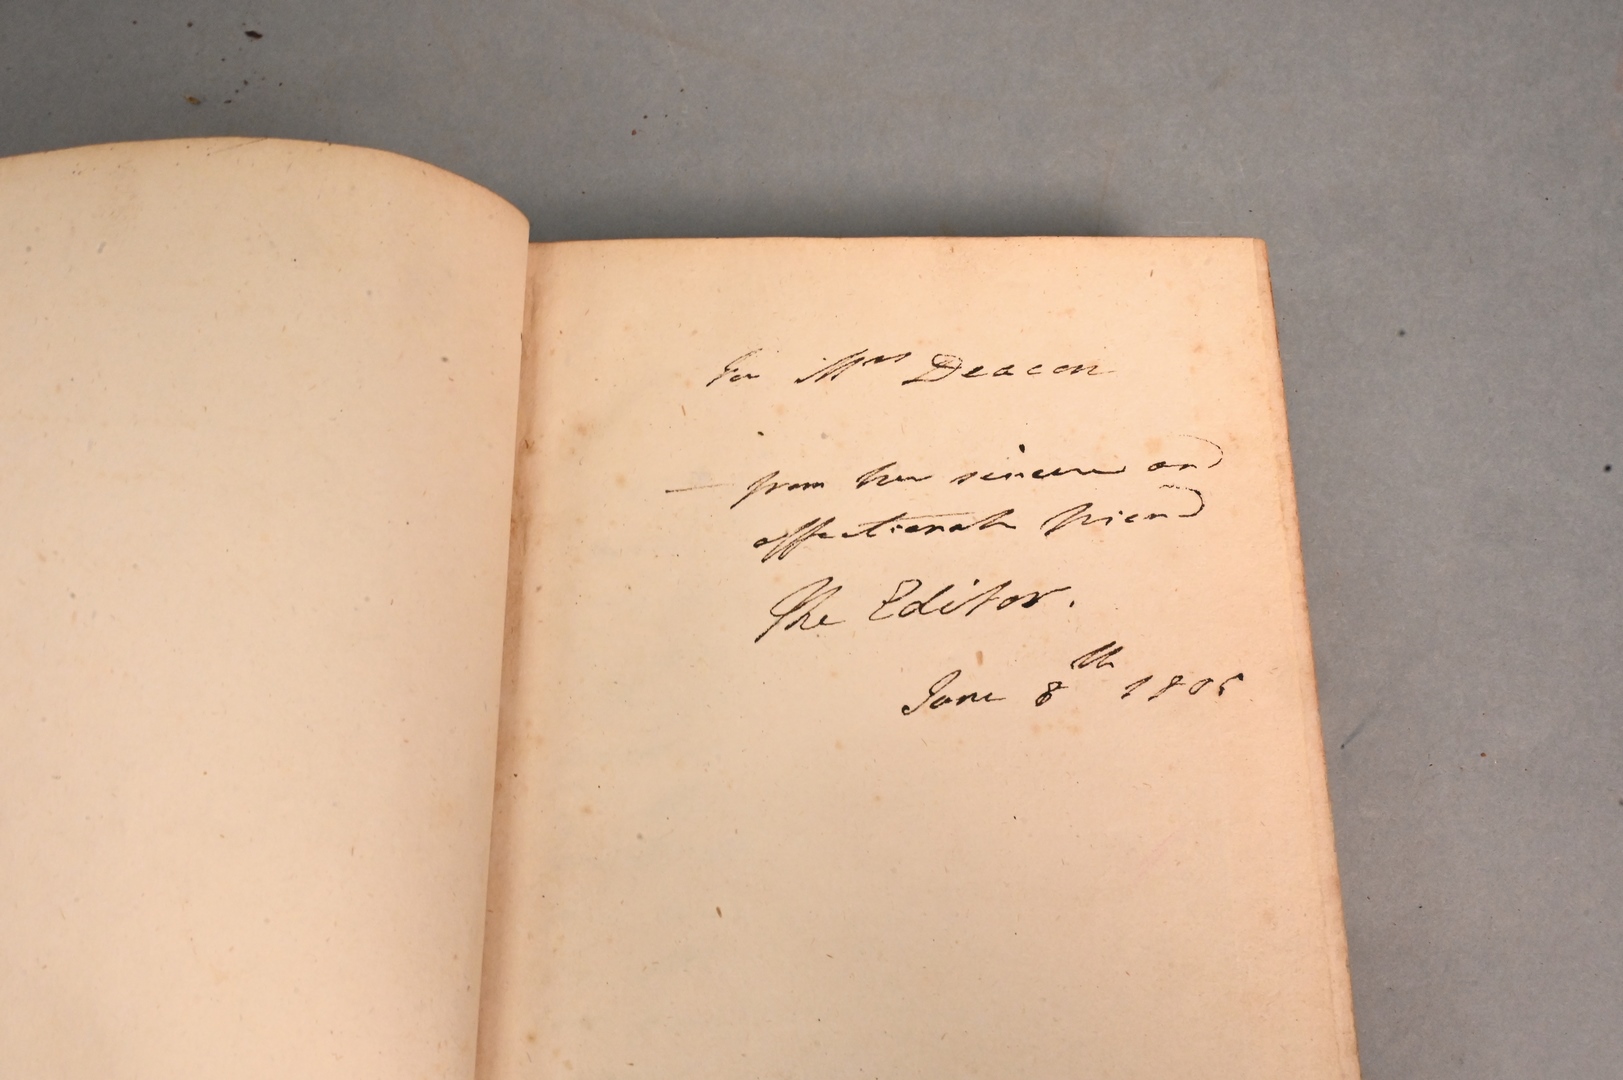 For Mrs Deacon
— from her sincere and
affectionate friend
The Editor.
June 8th 1805